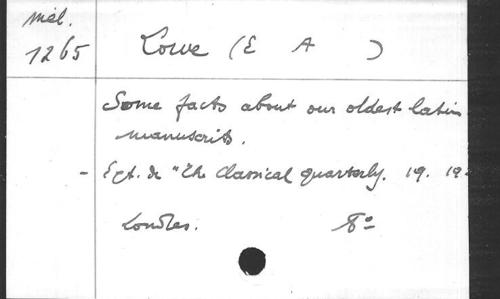 Mél.
1265
Lowe (E A )
Some facts about our oldest latin
manuscrits.
- Ext. de "The Classical quarterly. 19. 19
Londres. 8º